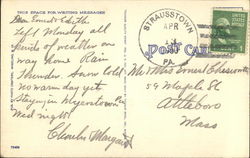 THIS SPACE FOR WRITING MESSAGES
Dear Ernest & Edith
Left Monday all
kinds of weather on
way home Rain
Thunder. Snow cold
no warm day yet
Staying in Myerstown Pa
Wed night
Charles Margaret
STRAUSSTOWN
APR
PA.
POST CARD
Mr & Mrs Ernest
59 Maple St
Attleboro
Mass